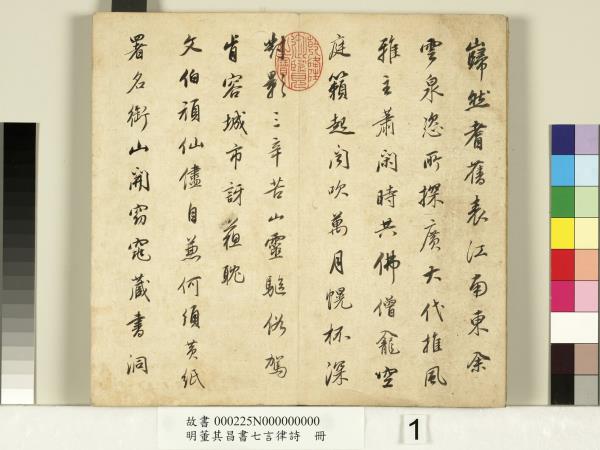 巋然耆舊表江南東余
雲泉恣所探廣大代推風
雅主蕭閑時共佛僧龕空
庭籟起闻吹萬月幌杯深
對影三辛苦山靈驅俗駕
肯容城市訝菰耽
文伯頑仙儘自兼何須黃紙
署名銜山開窈窕藏書洞
故書 000225N000000000
明董其昌書七言律詩 冊
1